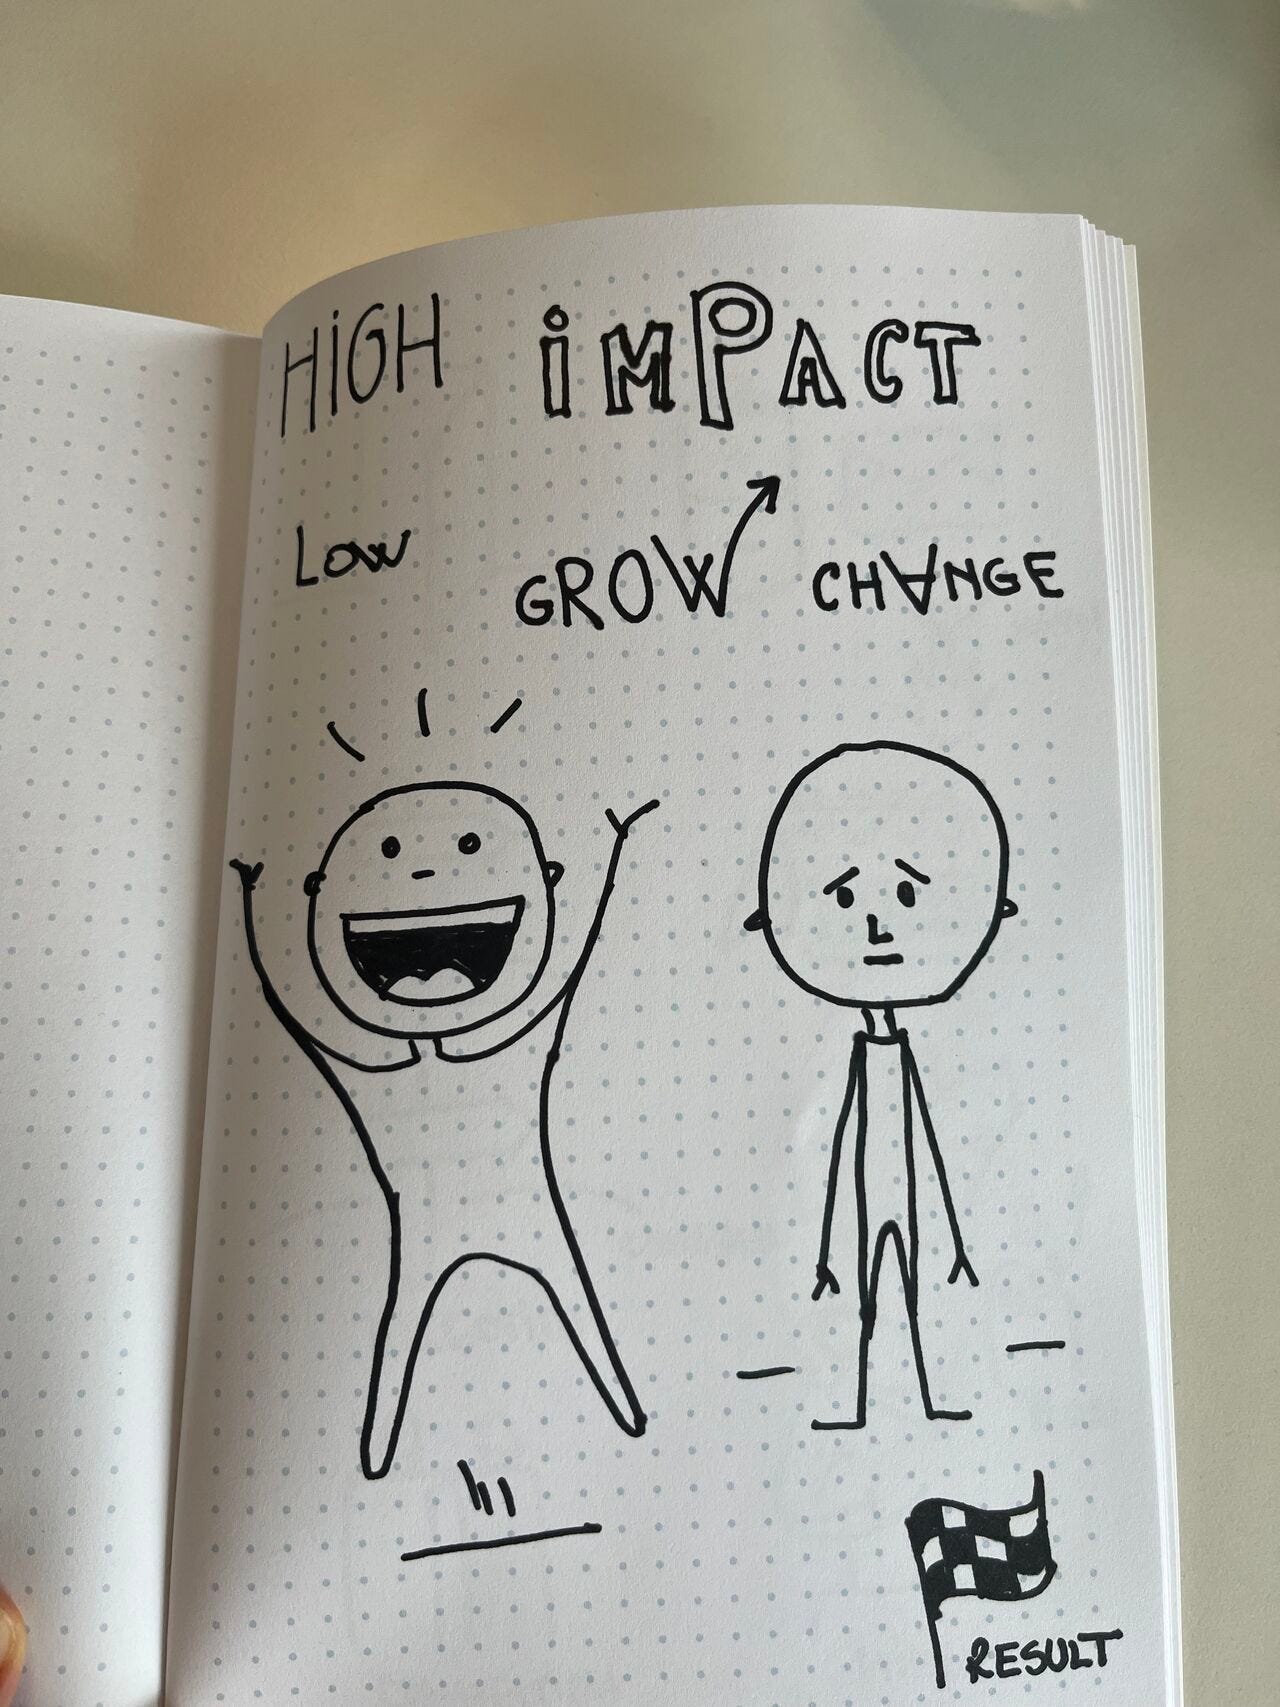 HiGH iMPACT
LOW GROW CHANGE
RESULT